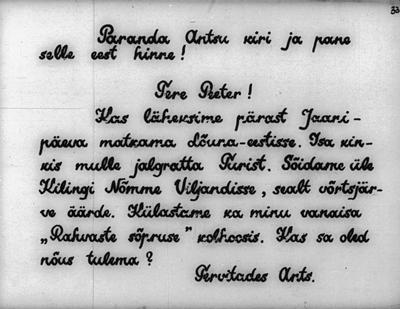 33
Paranda Antsu kiri ja pane
selle eest hinne!
Tere Peeter!
Kas läheksime pärast Jaani-
päeva matkama lõuna-eestisse. Isa kin-
kis mulle jalgratta Turist. Sõidame üle
Kilingi Nõmme Viljandisse, sealt võrtsjär-
ve äärde. Külastame ka minu vanaisa
„Rahvaste sõpruse” kolhoosis. Kas sa oled
nõus tulema?
Tervitades Ants.